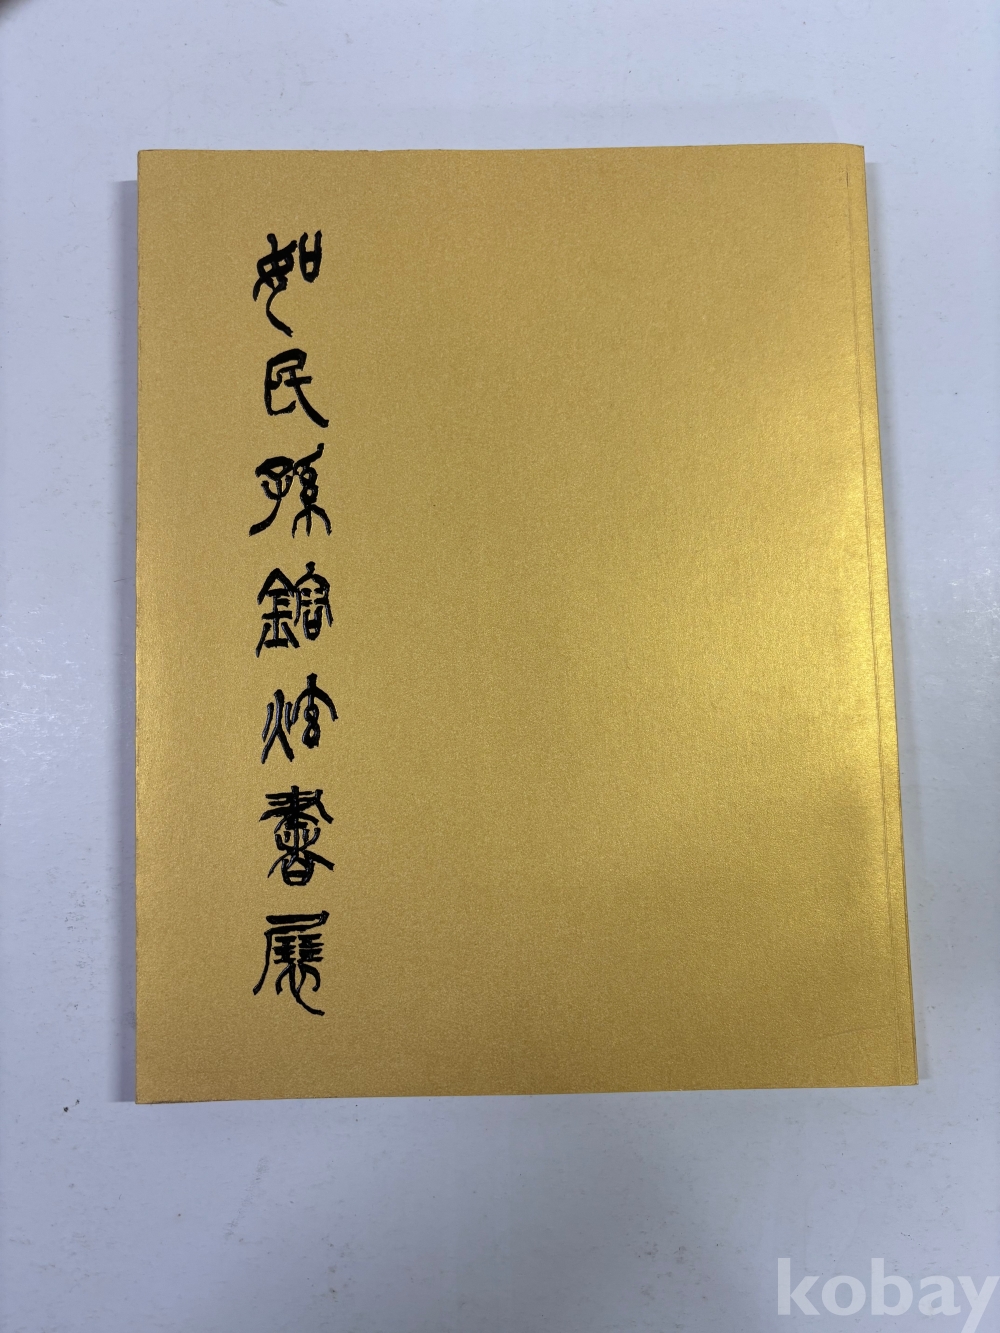 如民孫鎔炫書展
kobay